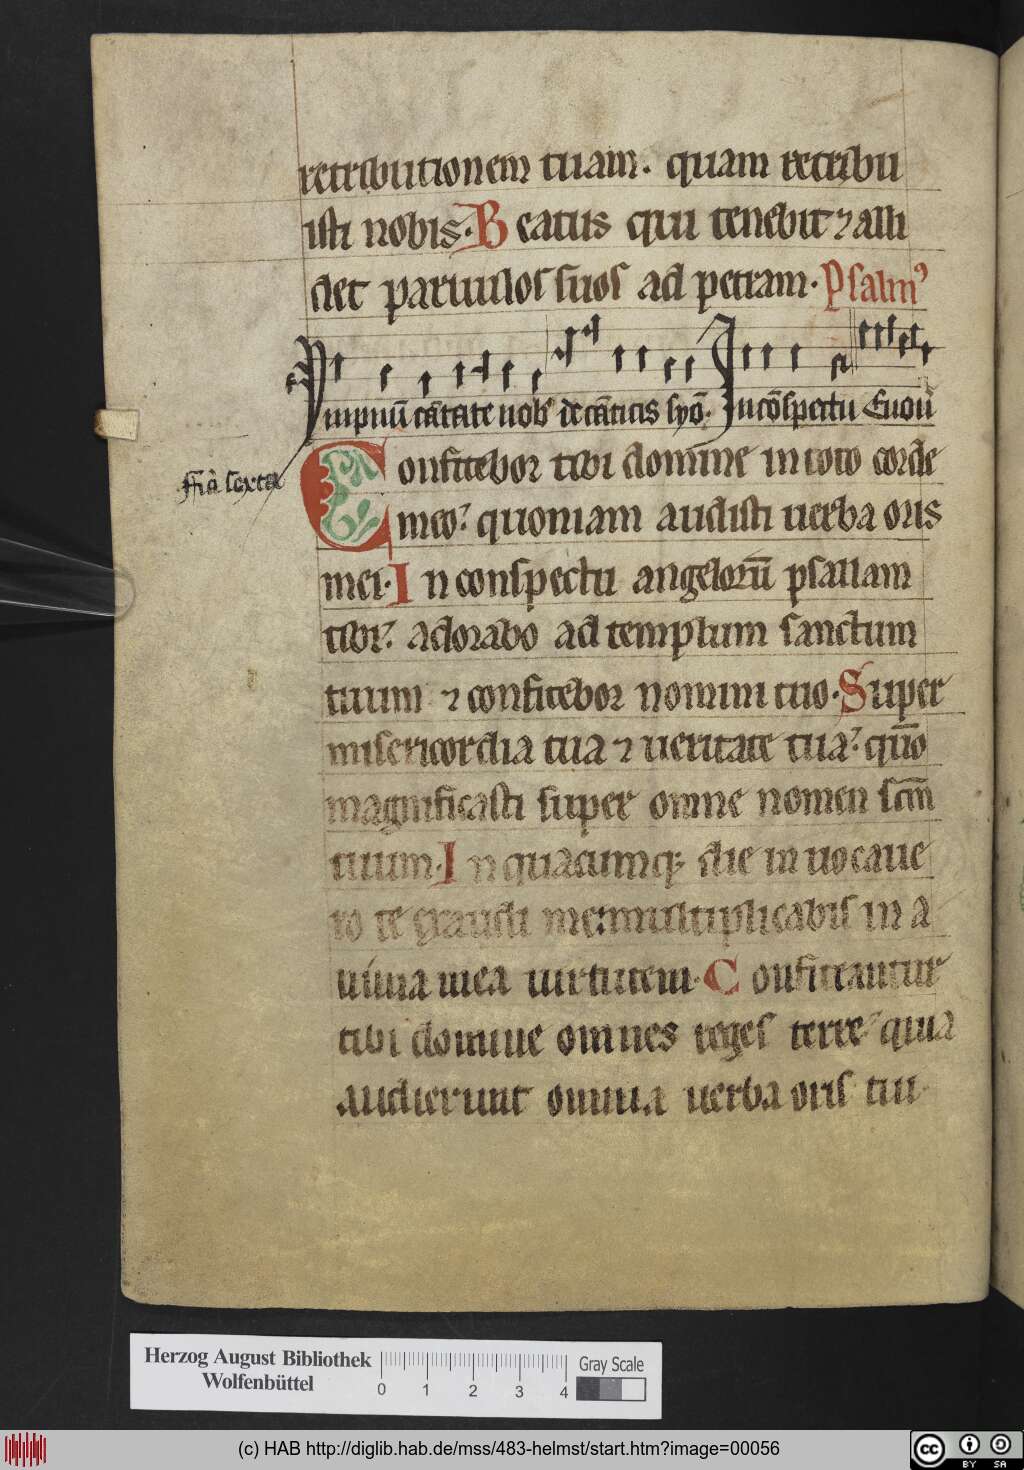 retributionem tuam. quam retribu
isti nobis. Beatus qui tenebit ⁊ alli
det paruulos suos ad petram. Psalmꝰ
Ympnū cātate nob de cāticis syō. In cōspectu Euouā
Confitebor tibi domine in toto corde
fīa sexta
meo? quoniam audisti uerba oris
mei. In conspectu angelorū psallam
tibi? adorabo ad templum sanctum
tuum ⁊ confitebor nomini tuo. Super
misericordia tua ⁊ ueritate tua? quō
magnificasti super omne nomen scm̄
tuum. In quacumqꝫ die inuocaue
ro te exaudi me: multiplicabis in a
nima mea uirtutem. Confiteantur
tibi domine omnes reges terre? quia
audierunt omnia uerba oris tui.
Herzog August Bibliothek
Wolfenbüttel
0 1 2 3 4
Gray Scale
(c) HAB http://diglib.hab.de/mss/483-helmst/start.htm?image=00056
cc BY SA